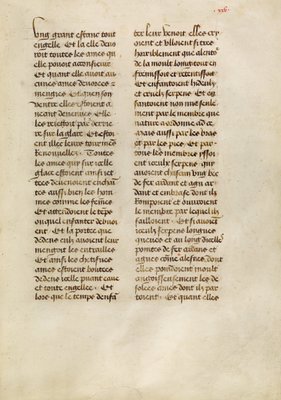 Ung grant estanc tout
engelle Et la elle devo
roit toutes les ames qu
elle povoit aconsieuir
Et quant elle avoit au
cunes ames devorees z
mengies Et que en son
ventre elles estoient a
neant demenees Elle
les reiectoit par derrie
re sur la glace Et estoi
ent illec leurs tourmens
renouvellez Toutes
les ames qui sur icelle
glace estoient ainsi iet
tees devenoient enchain
tes aussi bien les hom
mes comme les femes
Et attendoient le temps
ouquel enfanter devoi
ent Et la portee que
dedens eulx avoient leur
mengeoit les entrailles
Et ainsi les chetifves
ames estoient boutees
dedens icelle puant cave
et toute engellee Et
lors que le temps denfan
ter leur venoit elles cri
oient et ulloient si tres
horriblement que alento
de la moult long tout en
fremissoit et retentissoit
Et enfantoient hideulx
et cruelz serpens Et en
fantoient non mie seule
ment par le membre que
nature a ordonne ad ce
mais aussi par les bras
et par les pies Et par
tous les membres yssoi
ent iceulx serpens qui
avoient chascun ung bec
de fer ardant et agu ar
dant et embrase dont ilz
rompoient et ouvroient
le membre par lequel ilz
sailloient Et si avoient
iceulx serpens longues
queues et au long dicelle
pointes de fer ardans et
agues come alesnes dont
elles poindoient moult
angoisseusement les de
solees ames dont ilz par
toient Et quant elles